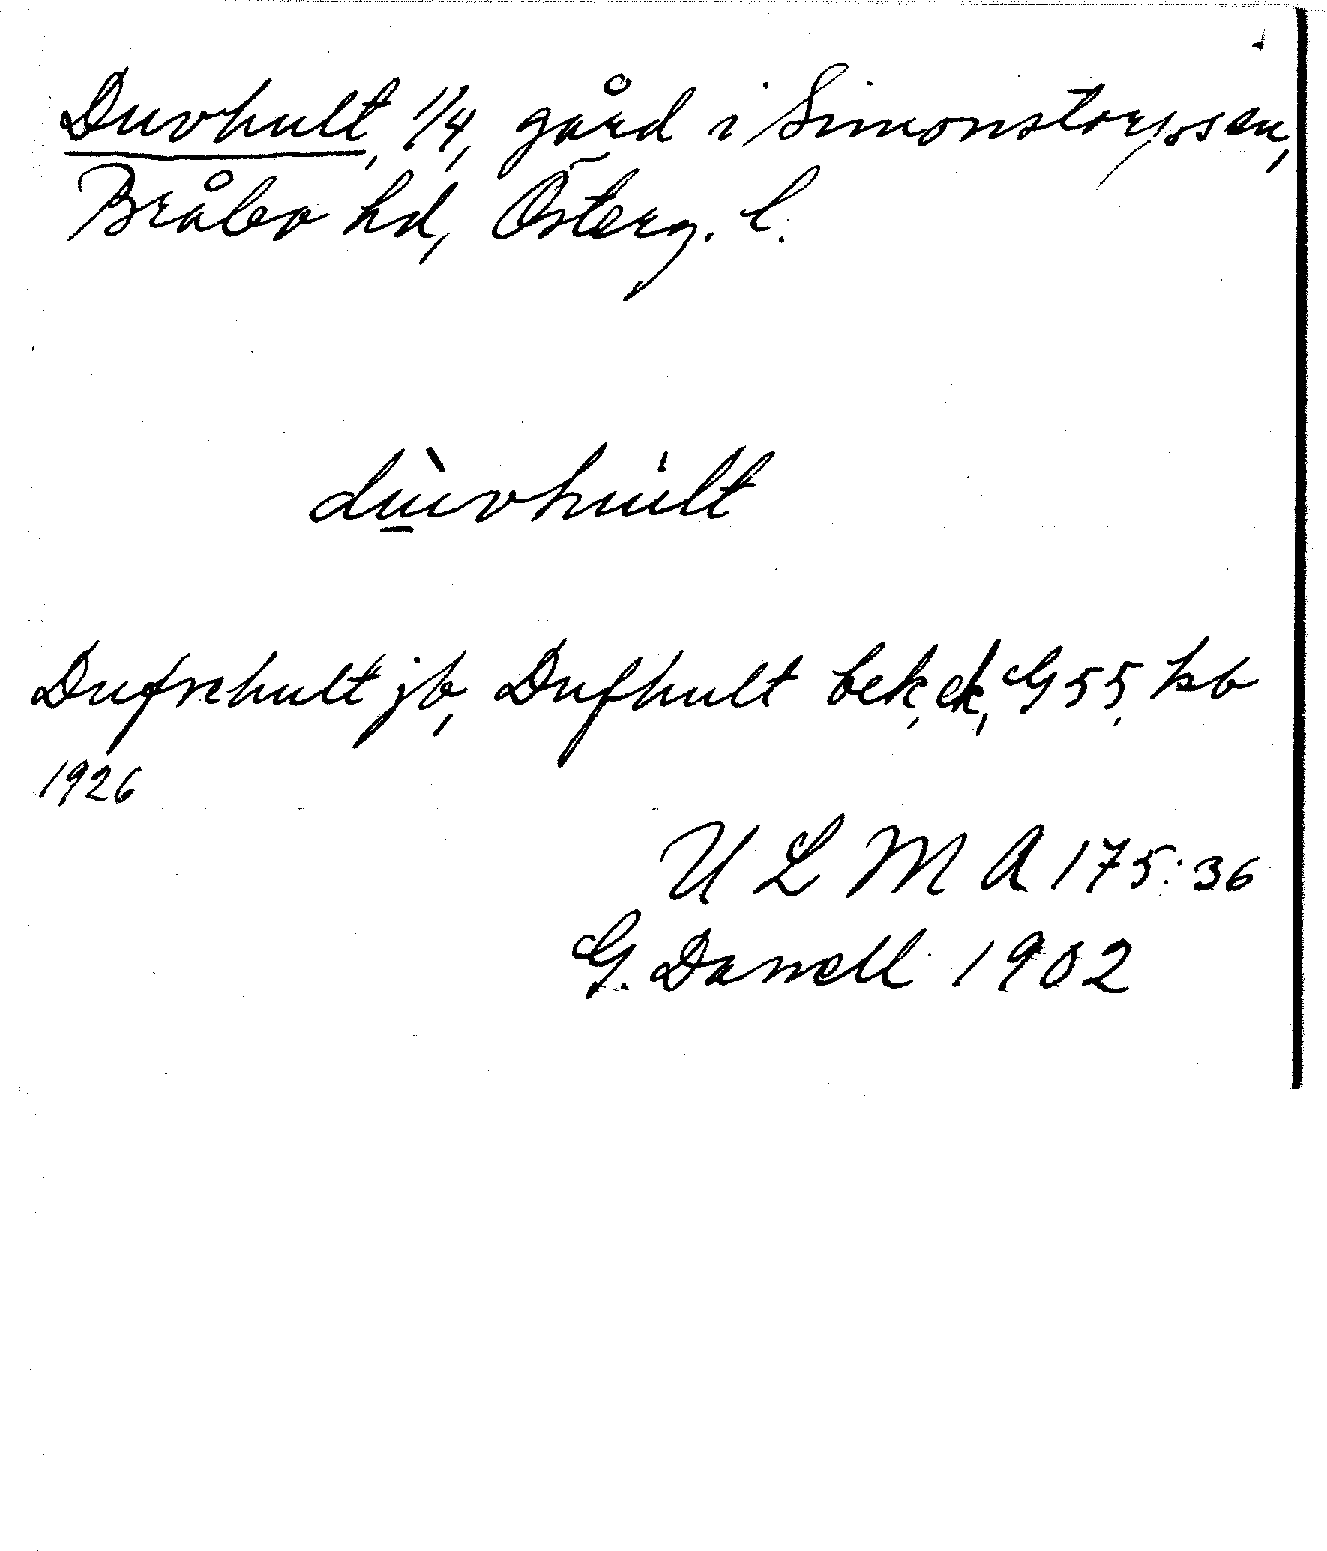 Duvhult, 1/4, gård i Simonstorps sn,
Bråbo hd, Österg. l.
dù̱vhu̍lt
Dufvehult jb, Dufhult bek, ek, G 55, kb
1926
U L M A 175:36
G. Danell 1902